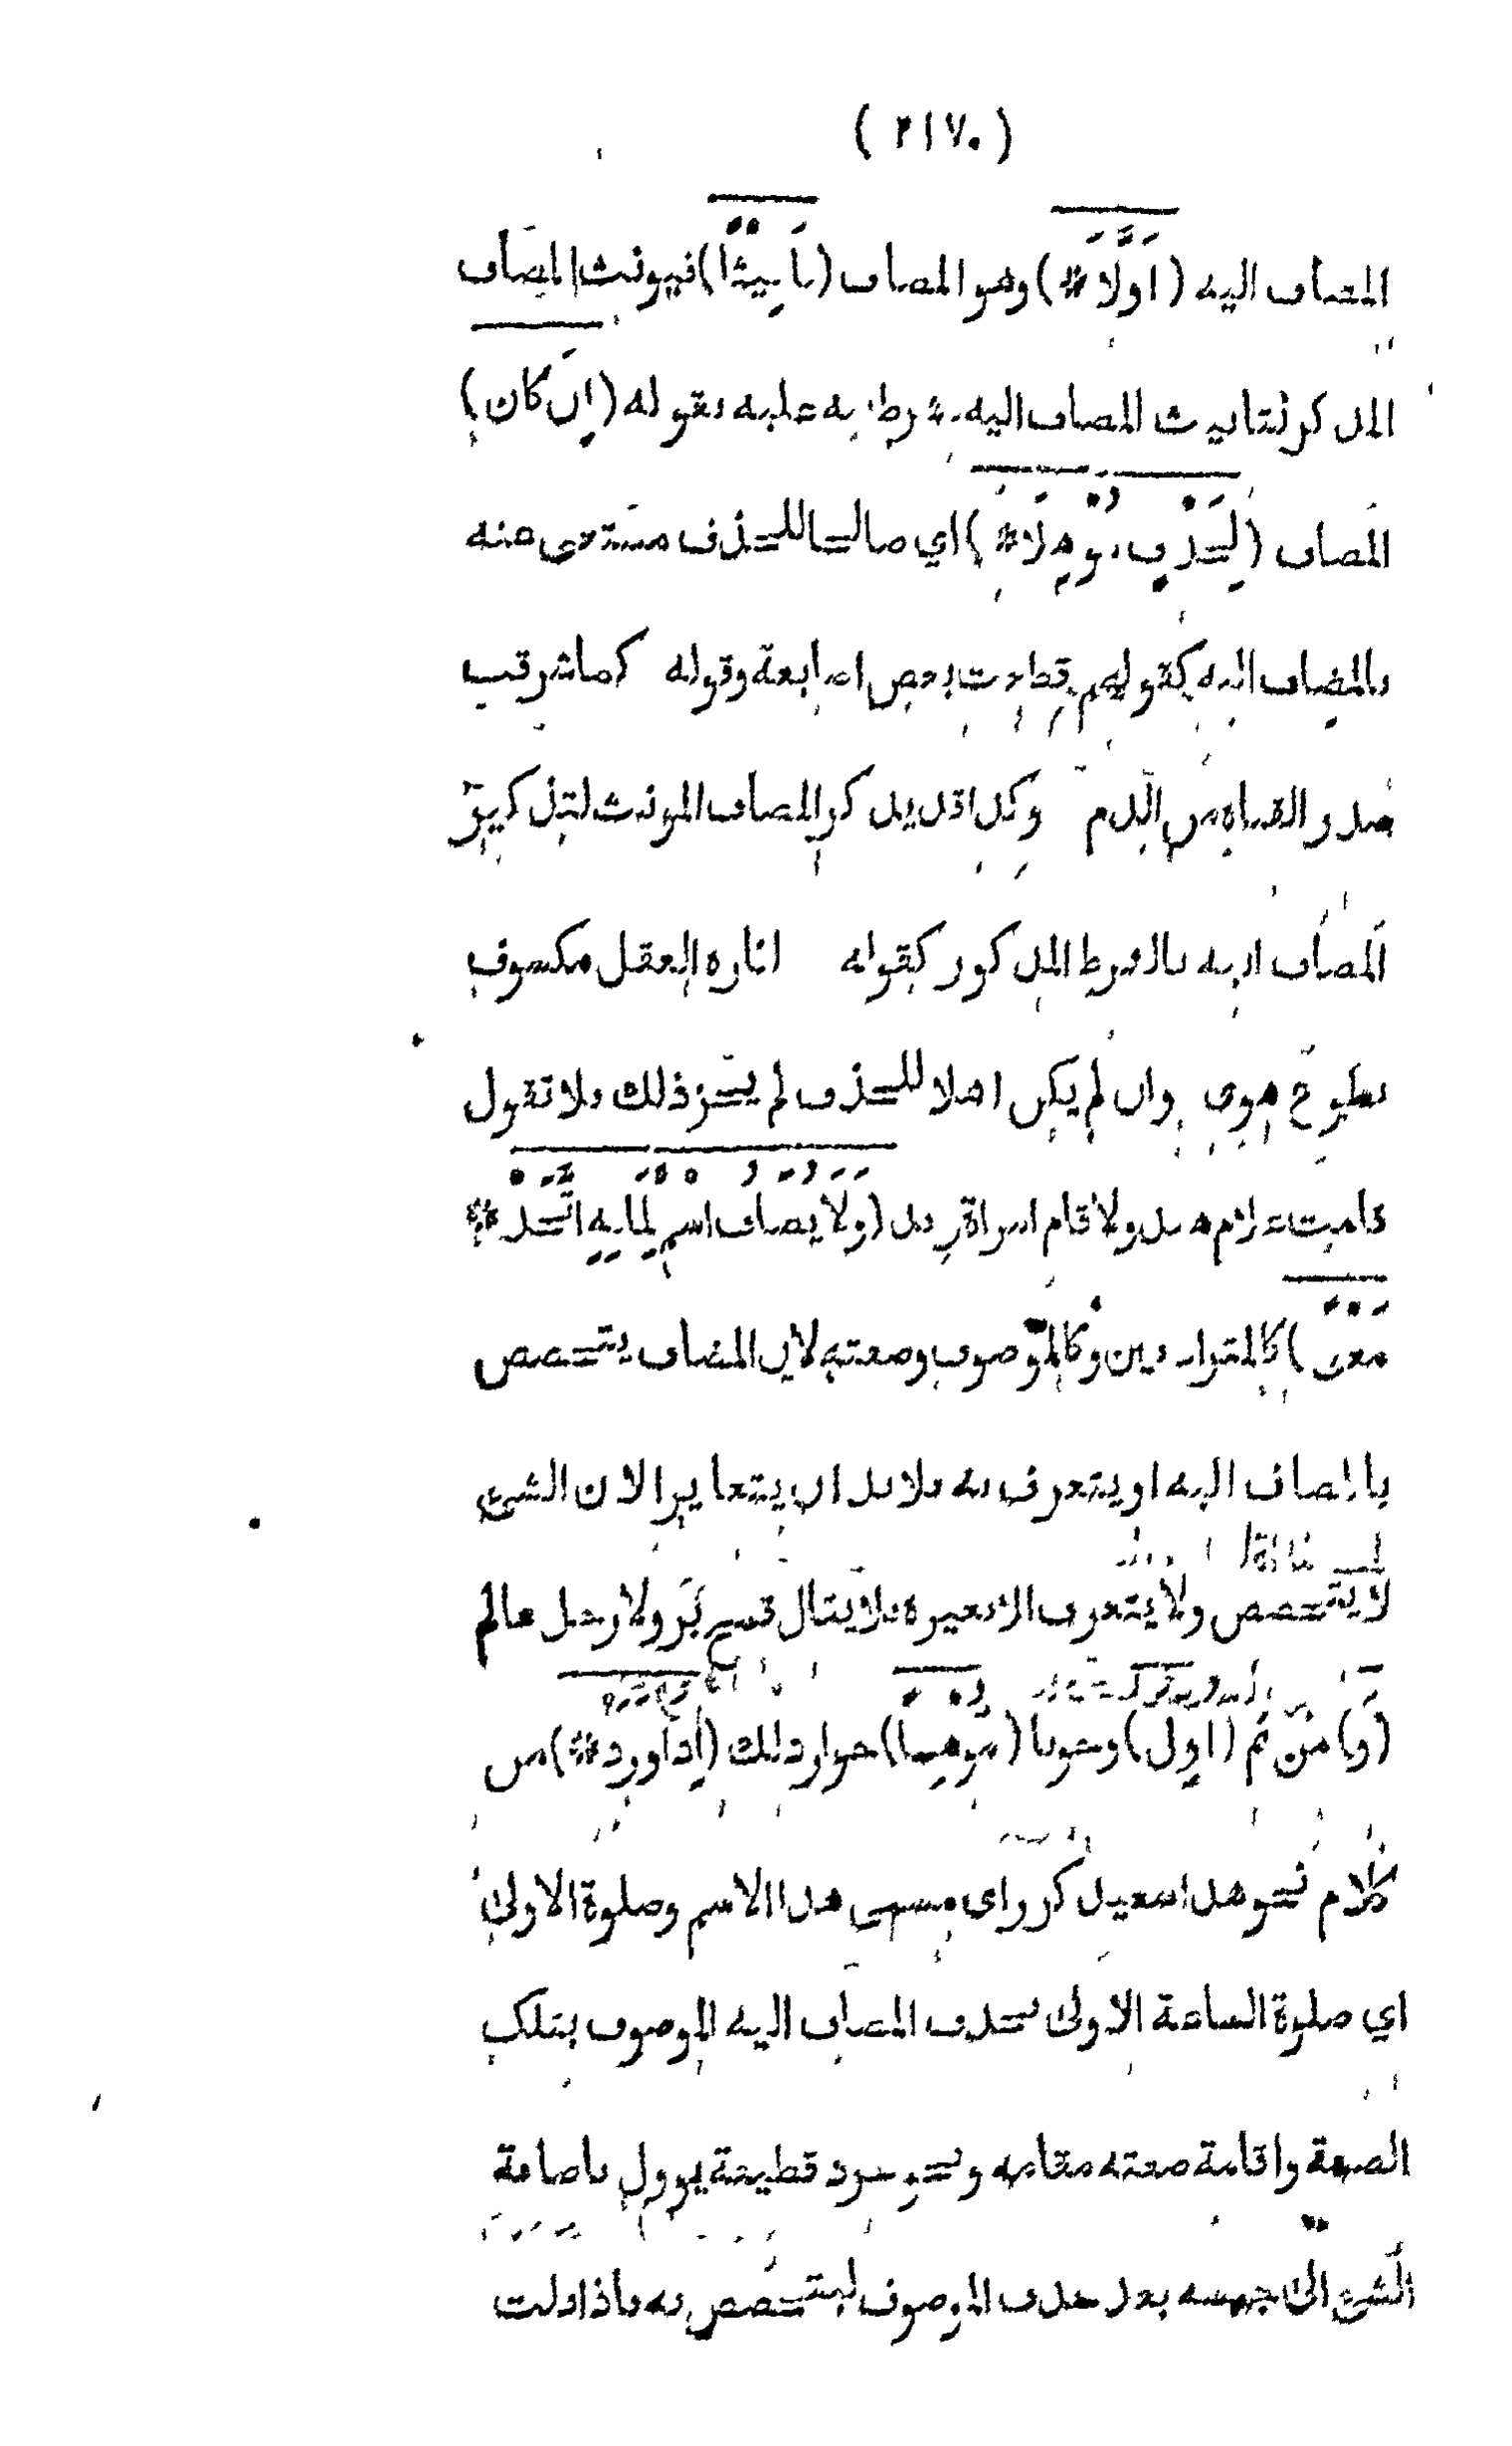 ( ٢١٧٠ )
المضاف اليه (اَوَّلًا*) وهو المضاف (تَأْنِيْثًا) فيونث المضاف
المذكر لتانيث المضاف اليه بقوله (اِن كَان)
المضاف (لِحَذْفٍ مُوْهَلَا*) اي صالحا للحذف مستغنى عنه
بالمضاف اليه كقولهم قطعت بعض اصابعه وقوله كما شرقت
صدر القناة من الدم وكذا قد يذكر المضاف المونث لتذكير
المضاف اليه بالشرط المذكور كقوله انارة العقل مكسوف
بطوع هوى وان لم يكن اهلا للحذف لم يجز ذلك فلا تقول
قامت غلام هند ولا قام امراة زيد (وَلَا يُضَافُ اسْمٌ لِمَا بِهِ اتَّحَدْ*
مَعْنًى) كالمترادفين وكالموصوف وصفته لان المضاف يتخصص
بالمضاف اليه او يتعرف به فلا بد ان يتغايرا لان الشيء
لا يتخصص ولا يتعرف الا بغيره فلا يقال قمح بر ولا رجل عالم
(وَ) من ثم (اَوِّل) وجوبا (مُوْهِمًا) جواز ذلك (اِذَا وَرَدْ*) من
كلام نحو هذا سعيد كرز اى مسمى هذا الاسم وصلوة الاولى
اي صلوة الساعة الاولى بحذف المضاف اليه الموصوف بتلك
الصفة واقامة صفته مقامه ونحو جرد قطيفة يوول باضافة
الشيء الى جنسه بعد حذف الموصوف ليتخصص به فاذا قلت